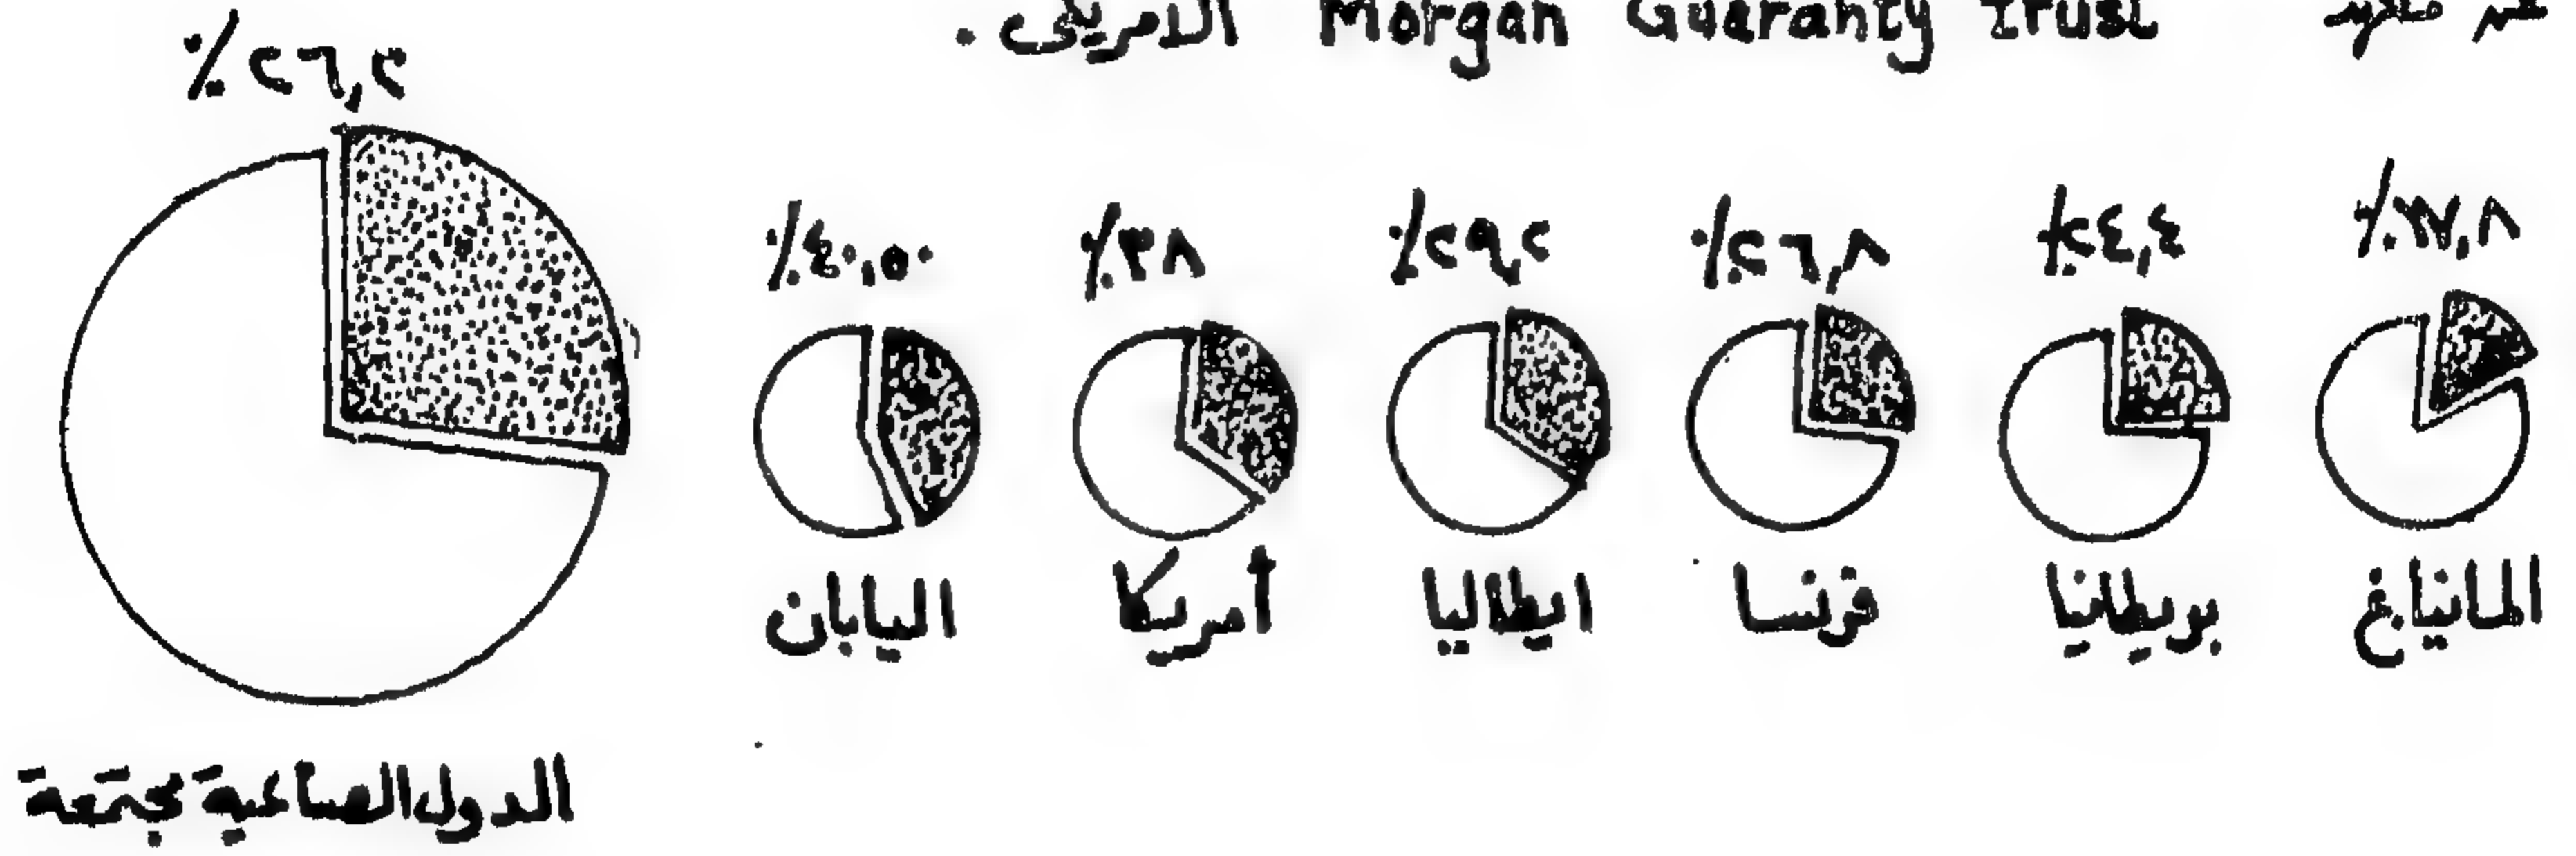 Morgan Guaranty Trust الامريكى .
٢٦,٢٪
١٧,٨٪
٢٤,٤٪
٢٦,٨٪
٢٩,٢٪
٣٨٪
٤٠,٥٠٪
المانيا غ
بريطانيا
فرنسا
ايطاليا
أمريكا
اليابان
الدول الصناعية مجتمعة